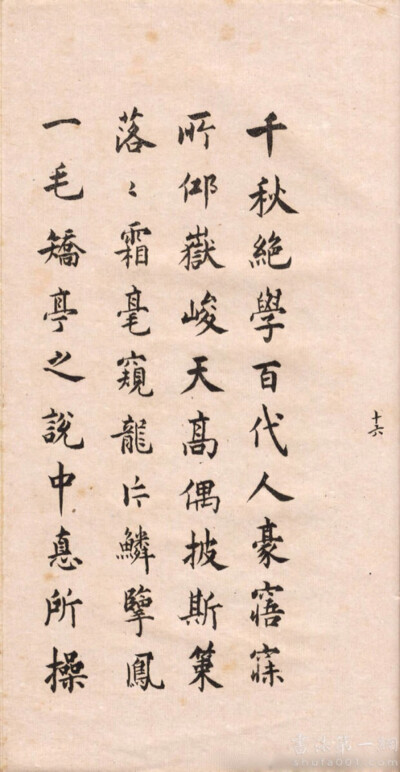 十六
千秋絕學百代人豪寤寐
所仰嶽峻天高偶披斯策
落〻霜毫窺龍片鱗擥鳳
一毛矯亭之說中悳所操
shufa001.com